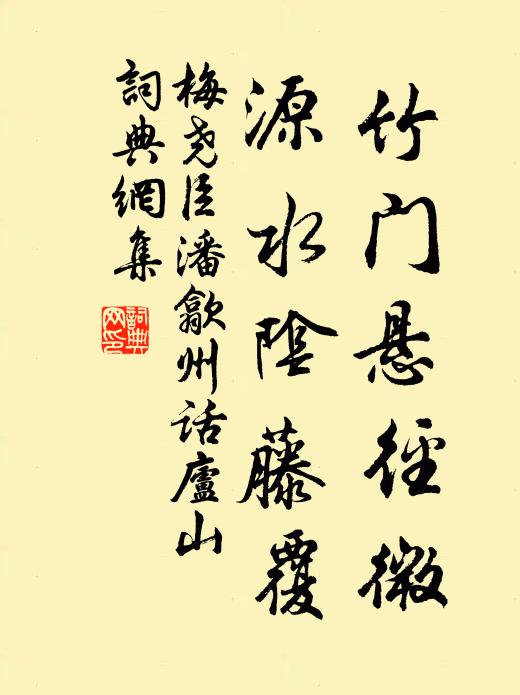 竹门悬径微
源水阴藤覆
梅尧臣潘歙州话廬山
詞典網集
詞典
网印